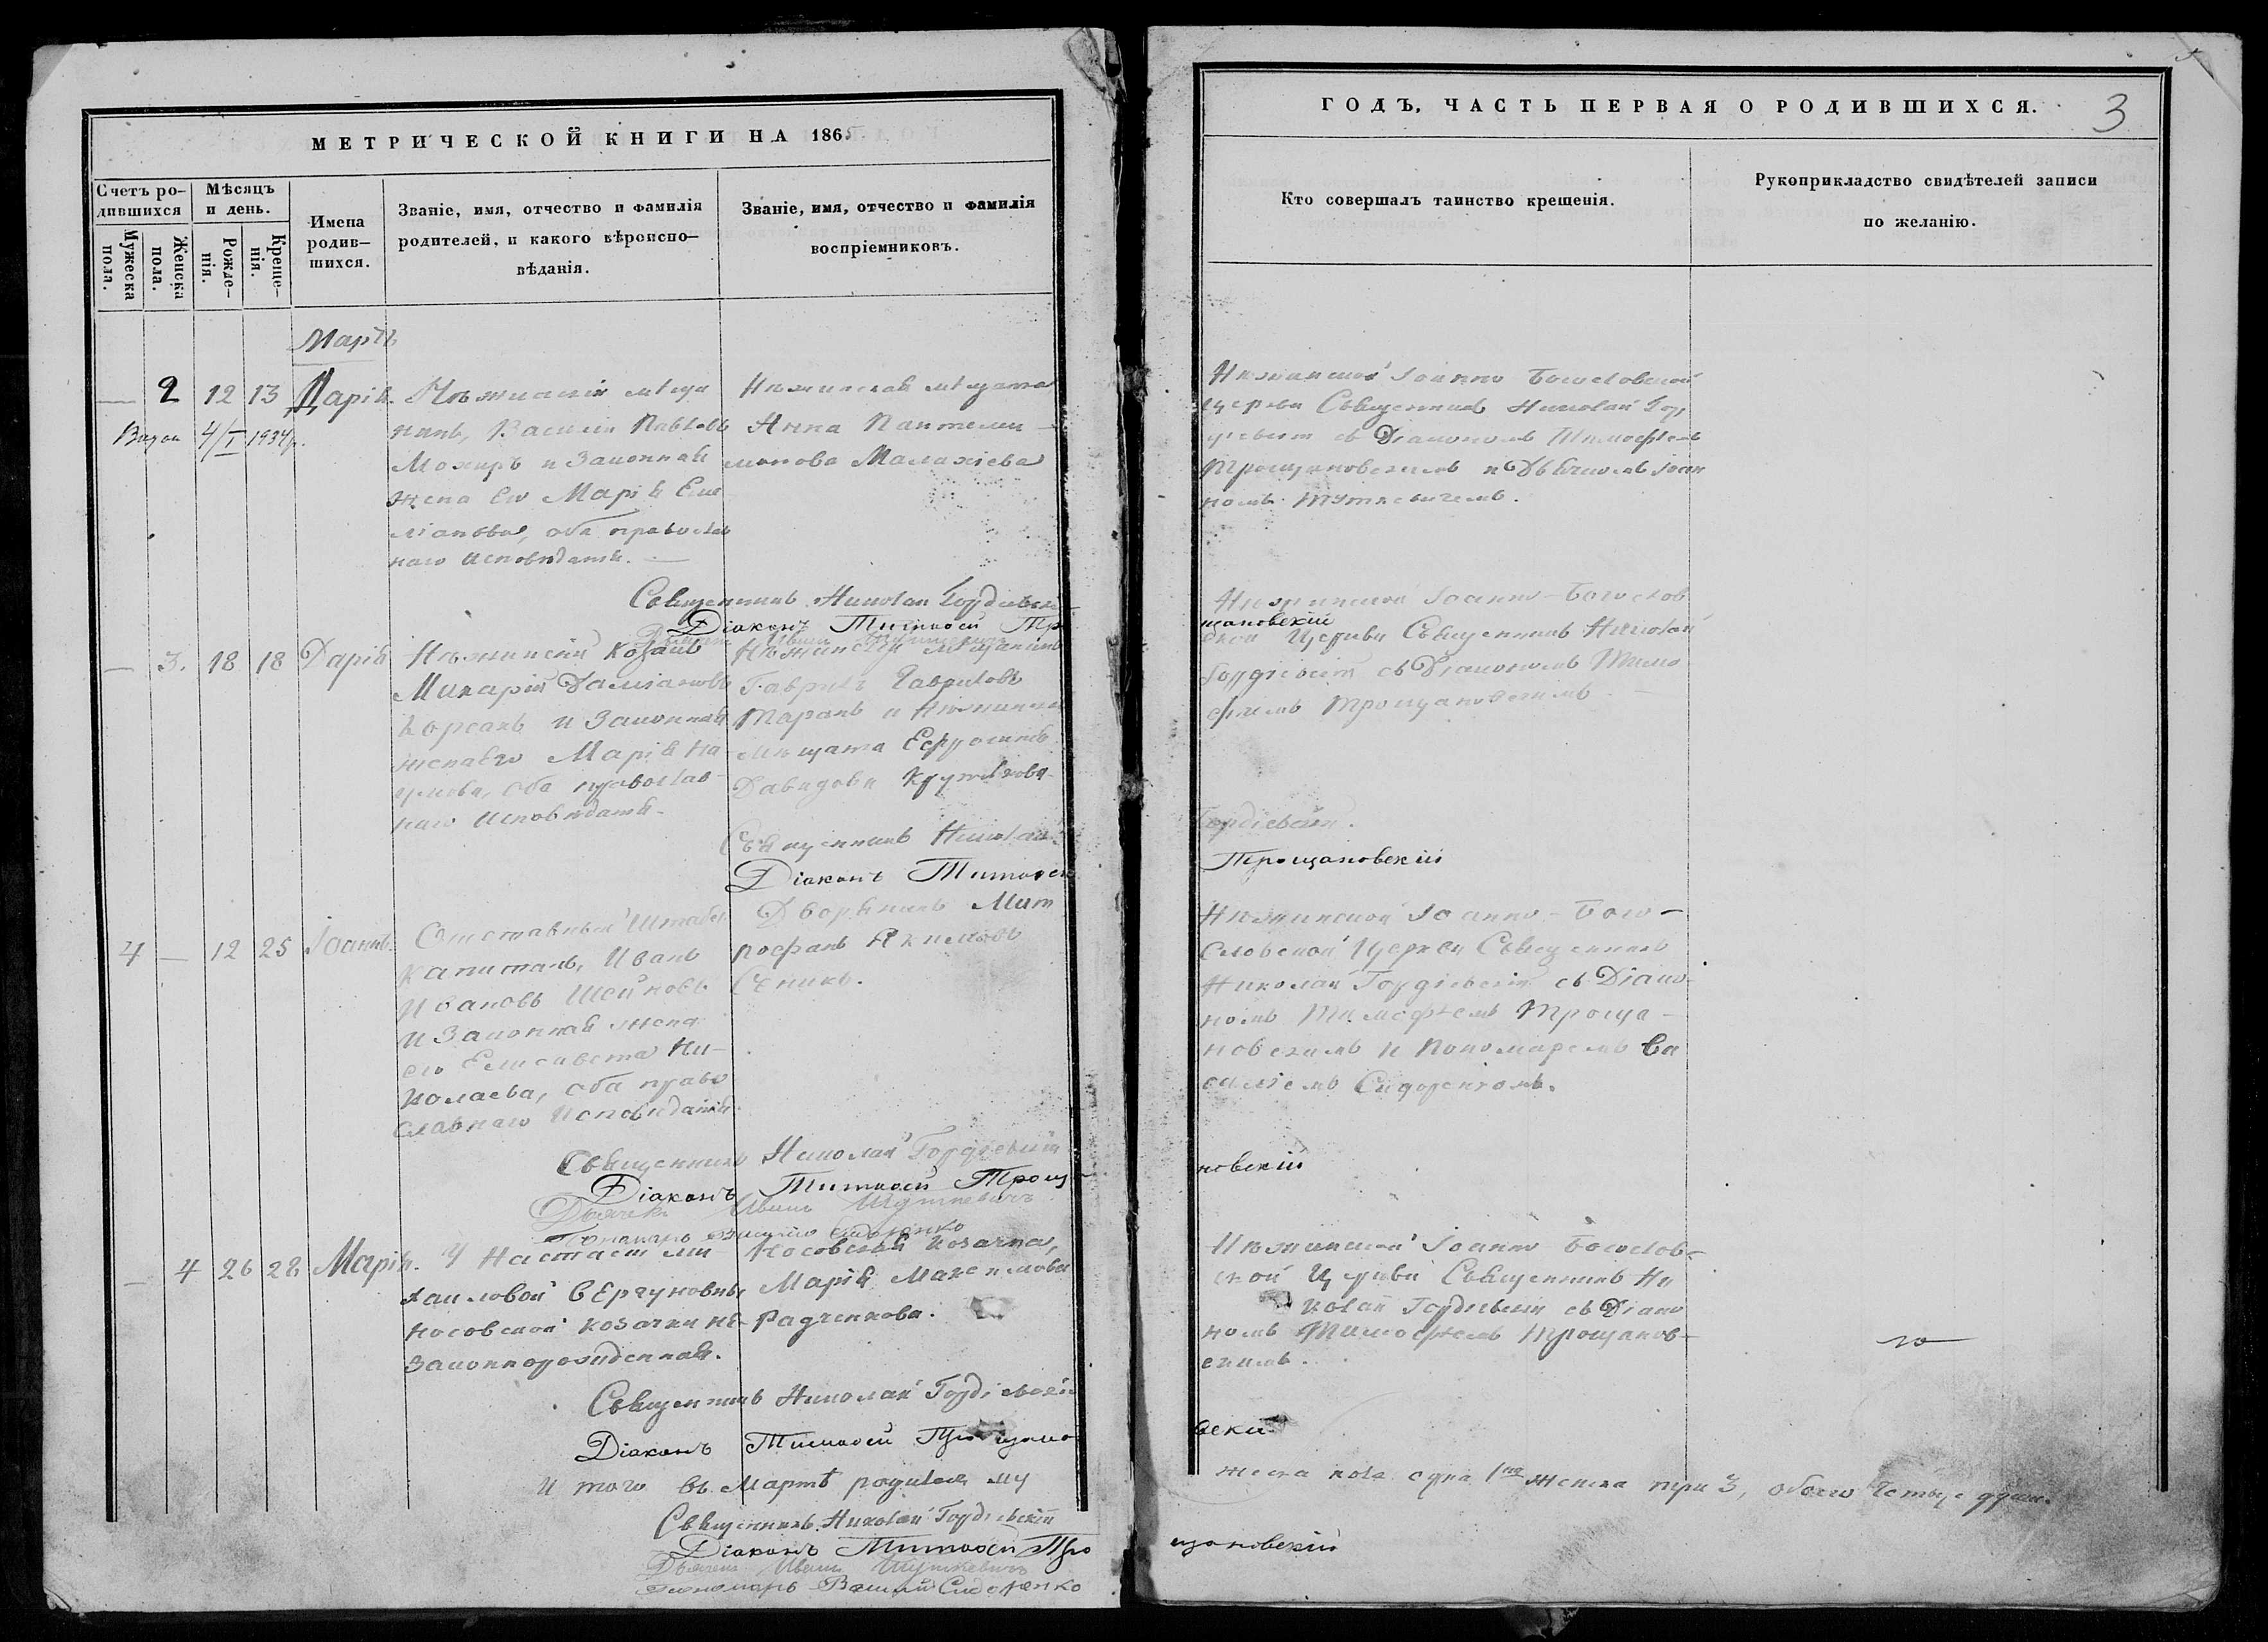 МЕТРИЧЕСКОЙ КНИГИ НА 1865
Счетъ ро-
дившихся
Мѣсяцъ
и день.
Мужеска
пола.
Женска
пола.
Рожде-
нія.
Креще-
нія.
Имена
родив-
шихся.
Званіе, имя, отчество и фамилія
родителей, и какого вѣроиспо-
вѣданія.
Званіе, имя, отчество и фамилія
воспріемниковъ.
Мартъ
— 2 12 13 Дарія.
4/I 1934р.
Нѣжинскій мѣща
нинъ, Василій Павловъ
и Законная
жена его Марія Еме
ліанова, оба православ
наго исповѣданія. —
Нѣжинская мѣщанка
Анна Пантелии
монова Малахіева
Священникъ Николай Гордіевскі
Діаконъ Тимофей Тро
— 3. 18 18 Дарія
Нѣжинскій Козакъ
Макарій Даміановъ
Корсакъ и Законная
жена его Марія На
умова, оба православ-
наго исповѣданія.
Нѣжинскій мѣщанинъ
Гаврилъ Гавриловъ
Таранъ и Нѣжинска
мѣщанка Ефросинія
Давидова
Священникъ Николай
Діаконъ Тимофей
4 — 12 25 Іоаннъ.
Отставный Штабсъ
Капитанъ, Иванъ
Ивановъ Шейновъ
и Законная жена
его Елисавета Ни-
колаева, оба право
славнаго исповѣданія.
Дворянинъ Мит
рофанъ Якимовъ
Сеникъ.
Священникъ Николай Гордіевскій
Діаконъ Тимофей Трощ-
Дьячекъ Иванъ Шуткевичъ
Пономарь Василій Сидоренко
— 4 26 28 Марія.
У Настасіи Ми
хаиловой
Носовской козачки не-
Законнорожденная.
Носовская козачка,
Марія Максимова
Радченкова.
Священникъ Николай Гордіевскій
Діаконъ Тимофей Трощано
И того въ Мартѣ родилось му
Священникъ Николай Гордіевскій
Діаконъ Тимофей Тро
Дьячекъ Иванъ Шуткевичъ
Пономарь Василій Сидоренко
ГОДЪ, ЧАСТЬ ПЕРВАЯ О РОДИВШИХСЯ.
3
Кто совершалъ таинство крещенія.
Рукоприкладство свидѣтелей записи
по желанію.
Нѣжинской Іоанно Богословской
Церкви Священникъ Николай Гор
діевскій съ Діакономъ Тимофѣемъ
Трощановскимъ и Дьячкомъ Іоан
номъ Шуткевичемъ.
Нѣжинской Іоанно-Богослов
щановскій
ской Церкви Священникъ Николай
Гордіевскій съ Діакономъ Тимо
фѣемъ Трощановскимъ. —
Гордіевскій.
Трощановскій
Нѣжинской Іоанно-Бого-
словской Церкви Священникъ
Николай Гордіевскій съ Діако-
номъ Тимофѣемъ Троща-
новскимъ и Пономаремъ Ва
силіемъ Сидоренкомъ.
новскій
Нѣжинской Іоанно Богослов-
ской Церкви Священникъ Ни
колай Гордіевскій съ Діако
номъ Тимофѣемъ Трощанов-
скимъ.
вскій
жеска пола одна 1на женска три 3, обоего Четыре души.
щановскій